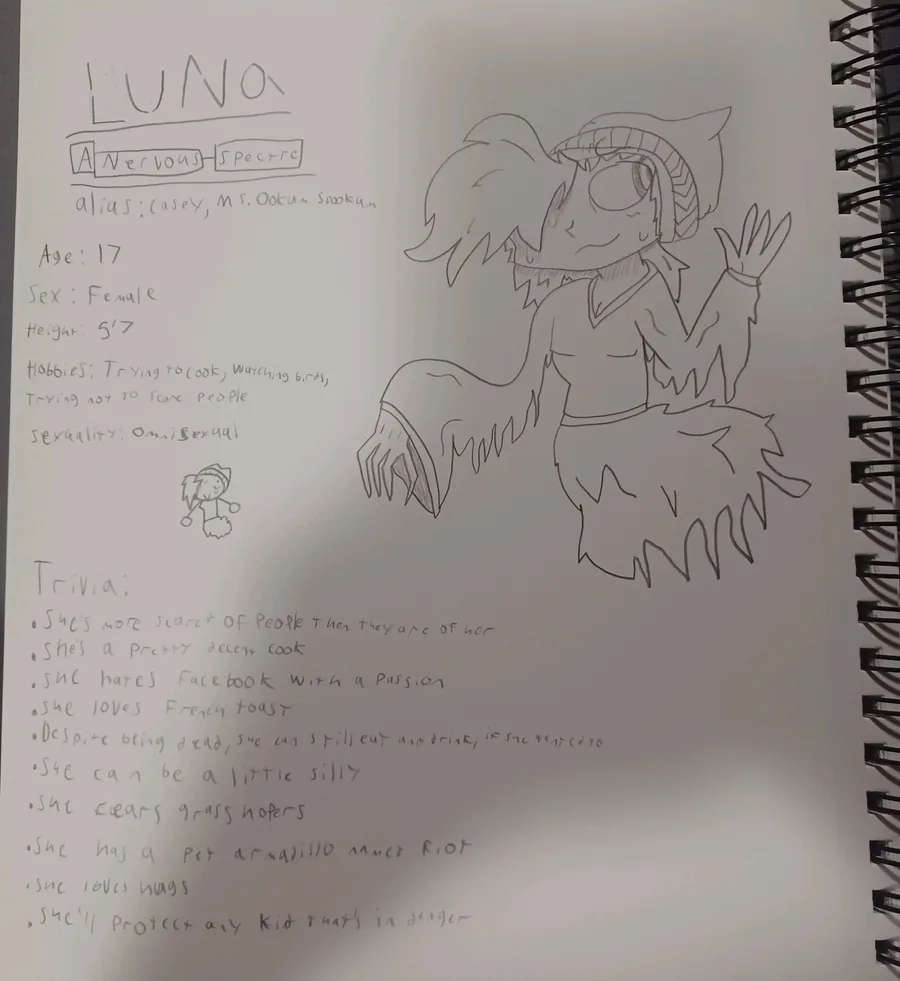 LUNA
A Nervous Spectre
alias: Casey, Ms. Ookum Spookum
Age: 17
Sex: Female
Height: 5'7
Hobbies: Trying to cook, watching birds,
Trying not to scare people
Sexuality: Omnisexual
Trivia:
• She's more scared of People Then they are of her
• She's a pretty decent cook
• She hates Facebook with a Passion
• She loves French toast
• Despite being dead, she can still eat and drink, if she wanted to
• She can be a little silly
• She fears grasshopers
• She has a Pet armadillo named Riot
• She loves hugs
• She'll Protect any kid that's in danger